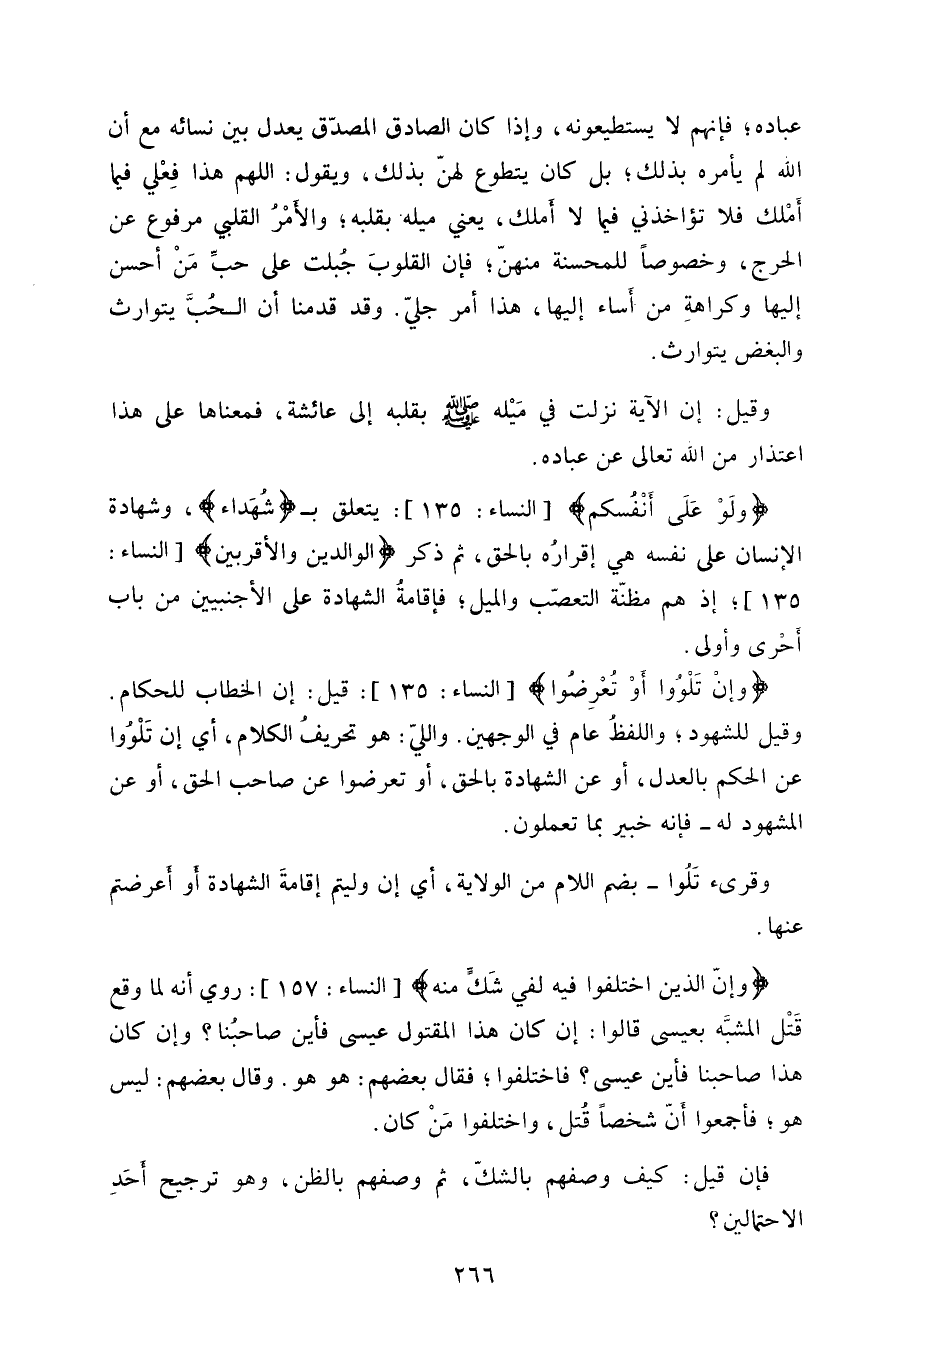 عباده؛ فإنهم لا يستطيعونه، وإذا كان الصادق المصدّق يعدل بين نسائه مع أن
الله لم يأمره بذلك؛ بل كان يتطوع لهنّ بذلك، ويقول: اللهم هذا فِعْلي فيما
أَمْلك فلا تؤاخذني فيما لا أملك، يعني ميله بقلبه؛ والأَمْرُ القلبي مرفوع عن
الحرج، وخصوصاً للمحسنة منهنّ؛ فإن القلوبَ جُبلت على حبِّ مَنْ أحسن
إليها وكراهةِ من أساء إليها، هذا أمر جليّ. وقد قدمنا أن الـحُبَّ يتوارث
والبغض يتوارث.
وقيل: إن الآية نزلت في مَيْله ﷺ بقلبه إلى عائشة، فمعناها على هذا
اعتذار من الله تعالى عن عباده.
﴿ولَوْ عَلَى أَنْفُسكم﴾ [النساء: ١٣٥]: يتعلق بـ﴿شُهَداء﴾، وشهادة
الإنسان على نفسه هي إقرارُه بالحق، ثم ذكر ﴿الوالدين والأقربين﴾ [النساء:
١٣٥]؛ إذ هم مظنّة التعصّب والميل؛ فإقامةُ الشهادة على الأجنبيين من باب
أَحْرى وأولى.
﴿وإنْ تَلْوُوا أَوْ تُعْرِضُوا﴾ [النساء: ١٣٥]: قيل: إن الخطاب للحكام.
وقيل للشهود؛ واللفظُ عام في الوجهين. والليّ: هو تحريفُ الكلام، أي إن تَلْوُوا
عن الحكم بالعدل، أو عن الشهادة بالحق، أو تعرضوا عن صاحب الحق، أو عن
المشهود له ـ فإنه خبير بما تعملون.
وقرىء تَلُوا ـ بضم اللام من الولاية، أي إن وليتم إقامةَ الشهادة أو أعرضتم
عنها.
﴿وإنّ الذين اختلفوا فيه لفي شَكٍّ منه﴾ [النساء: ١٥٧]: روي أنه لما وقع
قَتْل المشبَّه بعيسى قالوا: إن كان هذا المقتول عيسى فأين صاحبُنا؟ وإن كان
هذا صاحبنا فأين عيسى؟ فاختلفوا؛ فقال بعضهم: هو هو. وقال بعضهم: ليس
هو؛ فأجمعوا أنّ شخصاً قُتل، واختلفوا مَنْ كان.
فإن قيل: كيف وصفهم بالشكّ، ثم وصفهم بالظن، وهو ترجيح أَحَدِ
الاحتمالين؟
٢٦٦